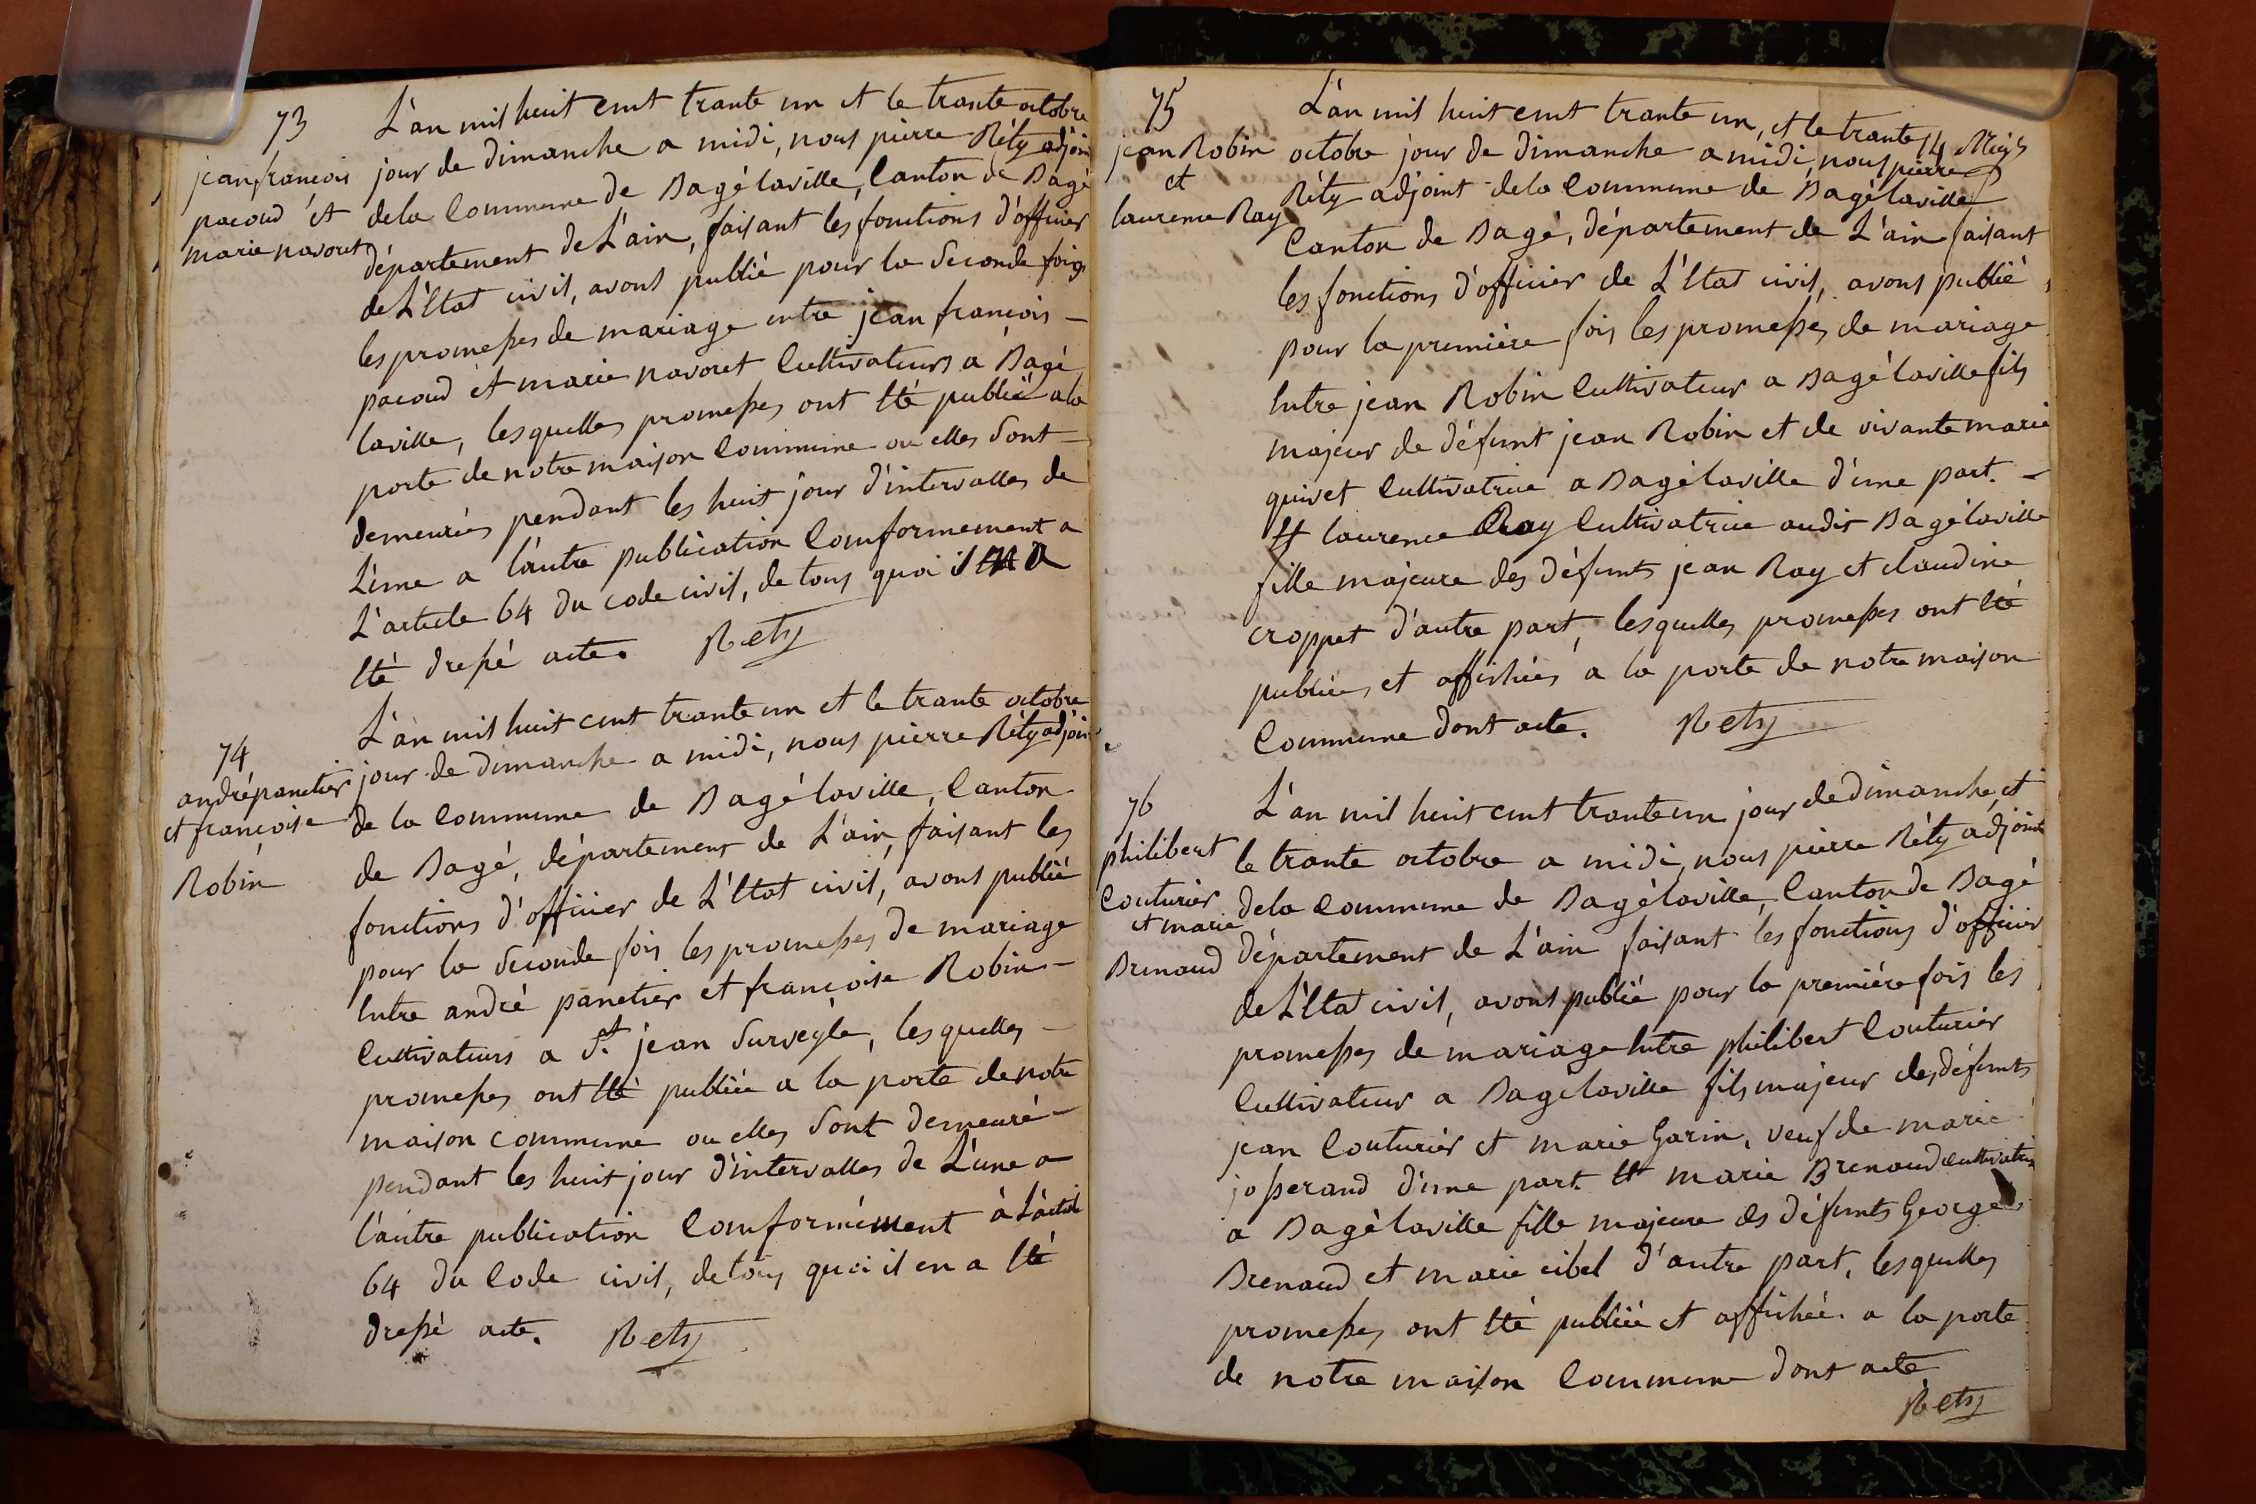 73
jean françois
pacoud et
marie navoret
L'an mil huit cent trante un et le trante octobre
jour de dimanche a midi, nous pierre Réty adjoin
dela Commune de Bagélaville, Canton de Bagé
département de L'ain, faisant les fonctions d'officier
de L'Etat civil, avons publié pour la Seconde fois
les promesses de mariage entre jean françois –
pacoud et marie navoret Cultivateurs a Bagé
laville, lesquelles promesses ont Eté publié ala
porte de notre maison Commune ou elles Sont –
demeurées pendant les huit jour d'intervalles de
L'une a l'autre publication Comformement a
L'article 64 du code civil, de tous quoi il en a
Eté dressé acte. Rety
74
andré panetier
et françoise
Robin
L'an mil huit cent trante un et le trante octobre
jour de dimanche a midi, nous pierre Réty adjoin
de la Commune de Bagélaville, Canton
de Bagé, département de L'ain, faisant les
fonctions d'officier de L'Etat civil, avons publié
pour la Seconde fois les promesses de mariage
Entre andré panetier et françoise Robin –
Cultivateurs a St. jean Surveyle, lesquelles –
promesses ont Eté publiée a la porte de notre
maison commune ou elles Sont demeuré –
pendant les huit jour d'intervalles de L'une a
l'autre publication Comformément à L'article
64 du Code civil, de tous quoi il en a Eté
dressé acte. Rety
75
jean Robin
et
laurence Ray
L'an mil huit cent trante un, et le trante
octobre jour de dimanche a midi, nous pierre
Réty adjoint dela Commune de Bagélaville
Canton de Bagé, département de L'ain faisant
les fonctions d'officier de L'Etat civil, avons publié
pour la première fois les promesses de mariage
Entre jean Robin Cultivateur a Bagélaville fils
majeur de défunt jean Robin et de vivante marie
quivet Cultivatrice a Bagélaville d'une part. –
Et laurence Ray Cultivatrice audit Bagélaville
fille majeure des défunts jean Ray et claudine
croppet d'autre part, lesquelles promesses ont Eté
publiées et affichées a la porte de notre maison
Commune dont acte. Rety
76
philibert
Couturier
et marie
Brenaud
L'an mil huit cent trante un jour de dimanche et
le trante octobre a midi, nous pierre Réty adjoint
dela Commune de Bagélaville, Canton de Bagé
département de L'ain faisant les fonctions d'officier
de L'Etat civil, avons publié pour la première fois les
promesses de mariage Entre philibert Couturier
Cultivateur a Bagelaville fils majeur des défunts
jean Couturier et marie Garin, veuf de marie
josserand d'une part. Et marie Brenaud cultivatrice
a Bagélaville fille majeure des défunts George
Brenaud et marie cibel d'autre part, lesquelles
promesses ont Eté publiée et affichée a la porte
de notre maison Commune dont acte
Rety